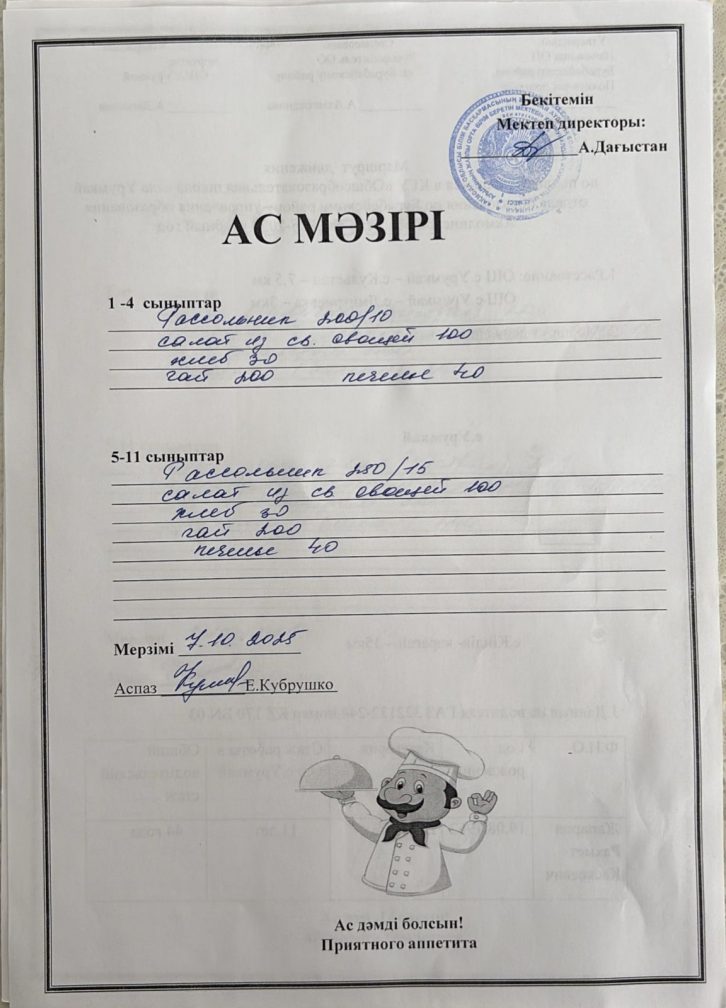 Бекітемін
Мектеп директоры:
А.Дағыстан
АС МӘЗІРІ
1 -4 сыныптар
Рассольник 200/10
салат из св. овощей 100
хлеб 30
чай 200 печенье 40
5-11 сыныптар
Рассольник 250/15
салат из св овощей 100
хлеб 30
чай 200
печенье 40
Мерзімі 7.10.2025
Аспаз Е.Кубрушко
Ас дәмді болсын!
Приятного аппетита